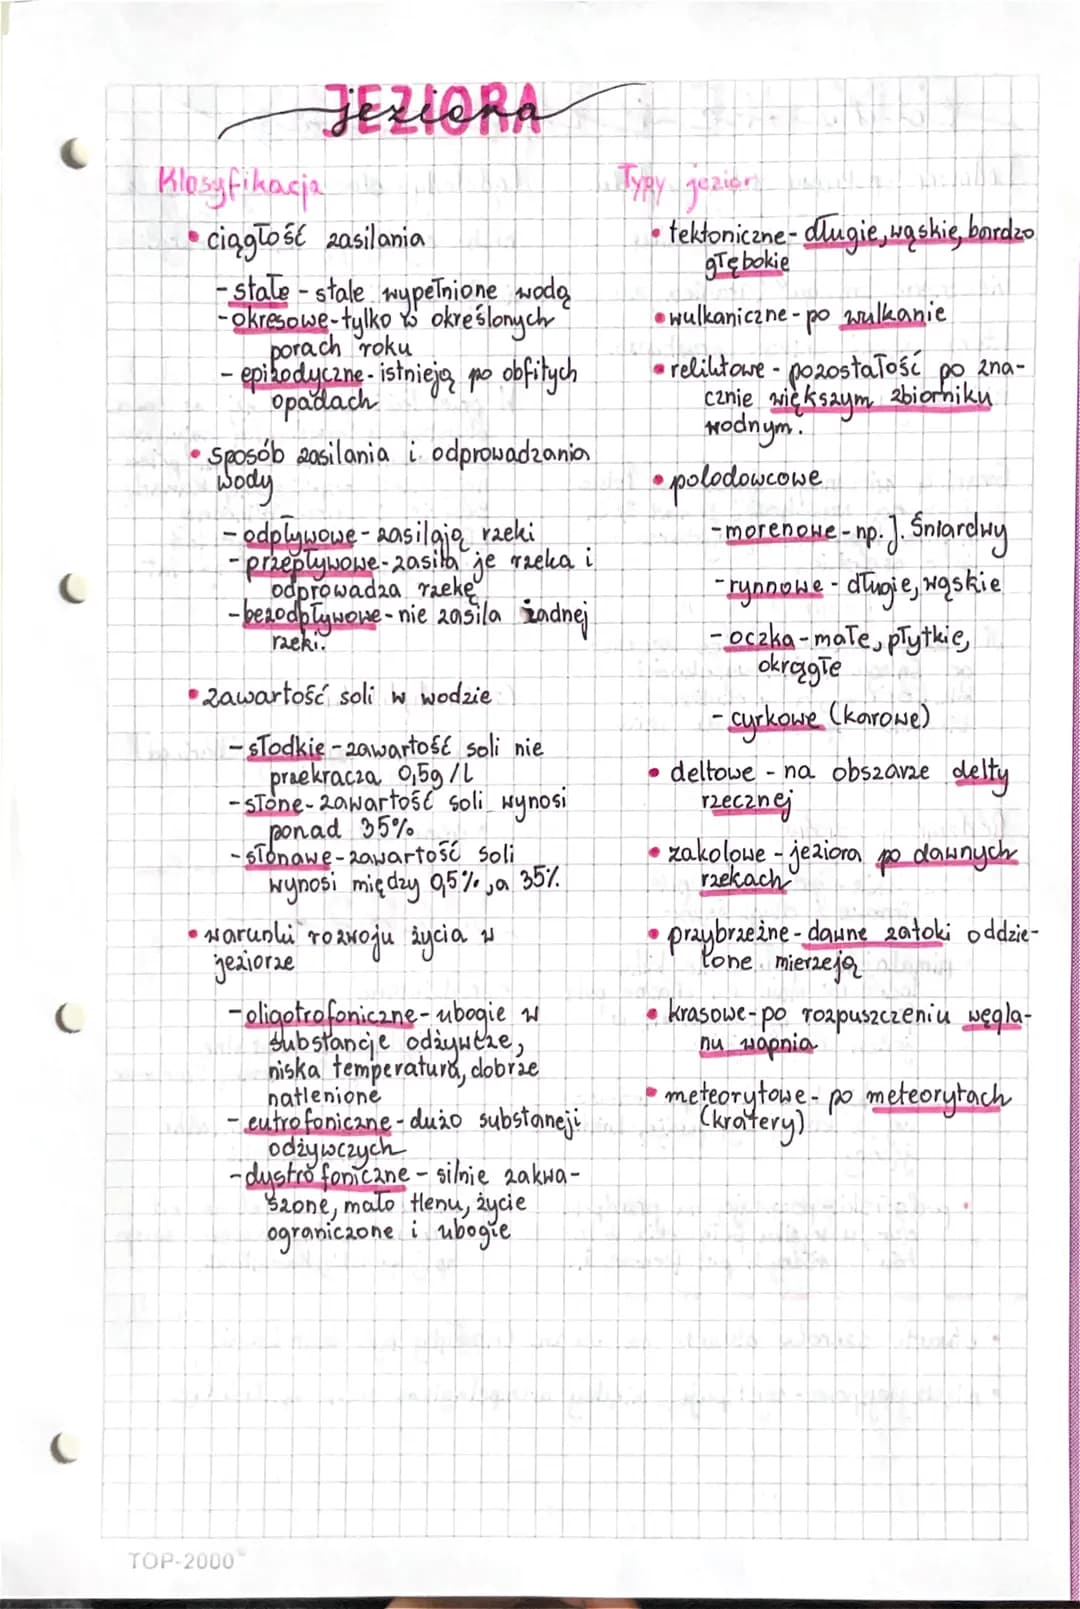 JEZIORA
jeziora
Klasyfikacja
• ciągłość zasilania
- stałe - stale wypełnione wodą
- okresowe - tylko w określonych
porach roku
- epizodyczne - istnieją po obfitych
opadach
• sposób zasilania i odprowadzania
wody
- odpływowe - zasilają rzeki
- przepływowe - zasila je rzeka i
odprowadza rzekę
- bezodpływowe - nie zasila żadnej
rzeki.
• zawartość soli w wodzie
- słodkie - zawartość soli nie
przekracza 0,5g/l
- słone - zawartość soli wynosi
ponad 35%
- słonawe - zawartość soli
wynosi między 0,5%, a 35%.
• warunki rozwoju życia w
jeziorze
- oligotrofoniczne - ubogie w
substancje odżywcze,
niska temperatura, dobrze
natlenione
- eutrofoniczne - dużo substancji
odżywczych
- dystrofoniczne - silnie zakwa-
szone, mało tlenu, życie
ograniczone i ubogie
Typy jezior
• tektoniczne - długie, wąskie, bardzo
głębokie
• wulkaniczne - po wulkanie
• reliktowe - pozostałość po zna-
cznie większym zbiorniku
wodnym.
• polodowcowe
- morenowe - np. J. Śniardwy
- rynnowe - długie, wąskie
- oczka - małe, płytkie,
okrągłe
- cyrkowe (karowe)
• deltowe - na obszarze delty
rzecznej
• zakolowe - jeziora po dawnych
rzekach
• przybrzeżne - dawne zatoki oddzie-
lone mierzeją
• krasowe - po rozpuszczeniu węgla-
nu wapnia
• meteorytowe - po meteorytach
(kratery)
TOP-2000